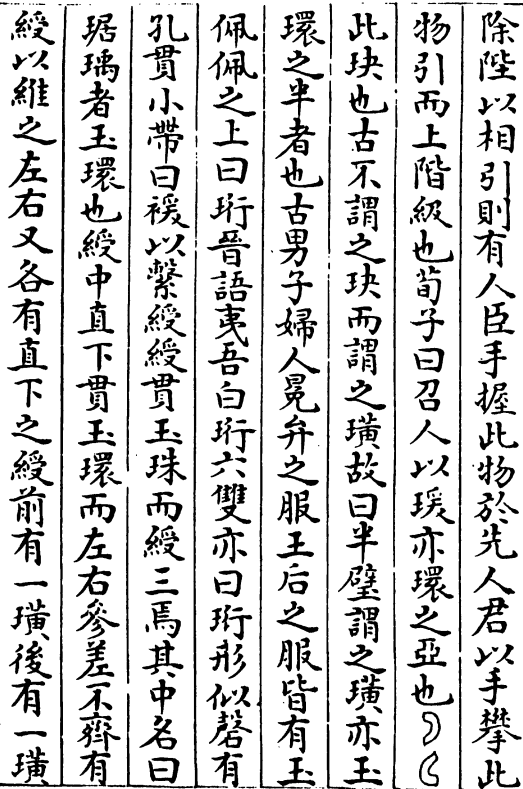 除陛以相引則有人臣手握此物於先人君以手攀此
物引而上階級也荀子曰召人以瑗亦環之亞也
此玦也古不謂之玦而謂之璜故曰半璧謂之璜亦玉
環之半者也古男子婦人冕弁之服王后之服皆有玉
佩佩之上曰珩晉語夷吾白珩六雙亦曰珩形似磬有
孔貫小帶曰褑以繫綬綬貫玉珠而綬三焉其中名曰
琚瑀者玉環也綬中直下貫玉環而左右參差不齊有
綬以維之左右又各有直下之綬前有一璜後有一璜